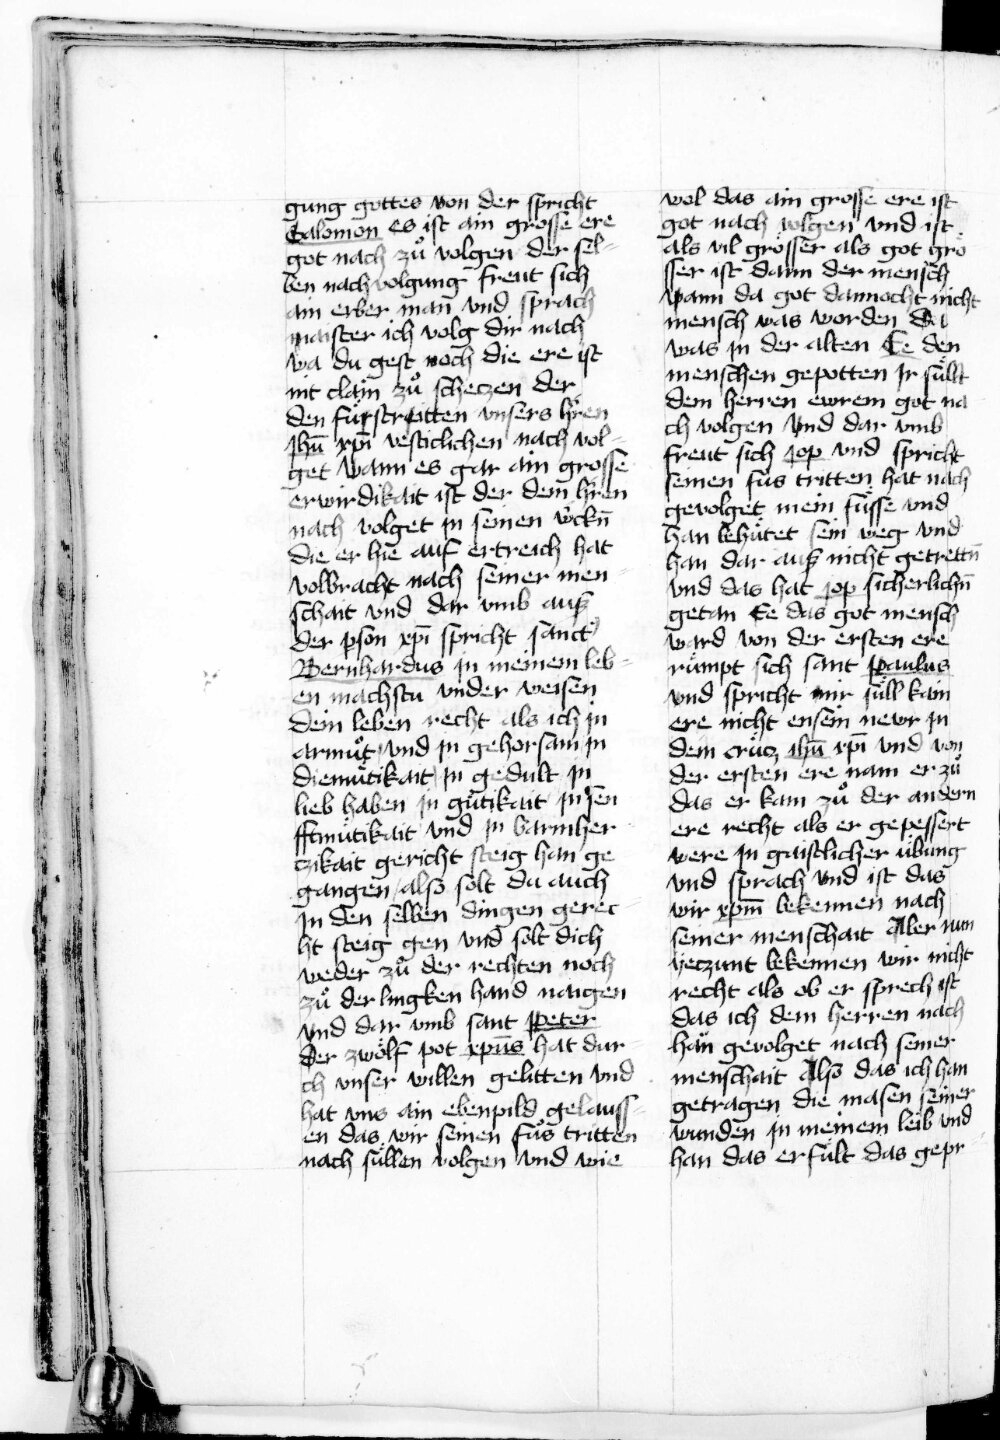 gung gottes von der spricht
Salomon es ist ain grosse ere
got nach zů volgen der sel-
ben nachvolgung freut sich
ain erber man̄ vnd sprach
maister ich volg dir nach
wa du gest noch die ere ist
nit clain zů scheczen der
den fürstreitten vnsers hr̄en
jhū xp̄i vesticlichen nach vol-
get wann es gar ain grosse
erwirdikait ist der dem hr̄en
nach volget in seinen w̄ckn̄
die er hie auf ertreich hat
volbracht nach seiner men-
schait vnd dar vmb auß
der pson xp̄i spricht sanct
Bernhardus in meinem leb-
en machstu vnder weisen
dein leben recht als ich in
armůt vnd in gehorsam in
diemütikait in gedult in
lieb haben in gütikait in sen
fftmütikait vnd in barmher
czikait gericht steig han ge
gangen also solt du auch
in den selben dingen gerec-
ht steig gen vnd solt dich
weder zů der rechten noch
zů der lingken hand naigen
vnd dar vmb sant Peter
der zwölf pot xp̄us hat dur-
ch vnser willen gelitten vnd
hat vns ain ebenpild gelauss-
en das wir seinen fůs tritten
nach süllen volgen vnd wie
wol das ain grosse ere ist
got nach volgen vnd ist
als vil grösser als got grö
sser ist dann der mensch
wann da got dannocht nicht
mensch was worden Da
was in der alten Ee den
menschen gepotten Ir süllt
dem herren ewrem got na-
ch volgen vnd dar vmb
freut sich Jop vnd spricht
seinen fůs tritten hat nach
gevolget mein füsse vnd
han behütet sein weg vnd
han dar auß nicht getrettn̄
vnd das hat Jop sicherlichn̄
getan Ee das got mensch
ward von der ersten ere
rümpt sich sant Paulus
vnd spricht mir süll kain
ere nicht ensein newr in
dem crücz jhū xp̄i vnd von
der ersten ere nam er zů
das er kam zů der andern
ere recht als er gepessert
were in gaistlicher übung
vnd sprach vnd ist das
wir xp̄m bekennen nach
seiner menschait Aber nun
yeczunt bekennen wir nicht
recht als ob er sprech ist
das ich dem herren nach
han gevolget nach seiner
menschait Also das ich han
getragen die masen seiner
wunden in meinem leib vnd
han das erfült das gepr